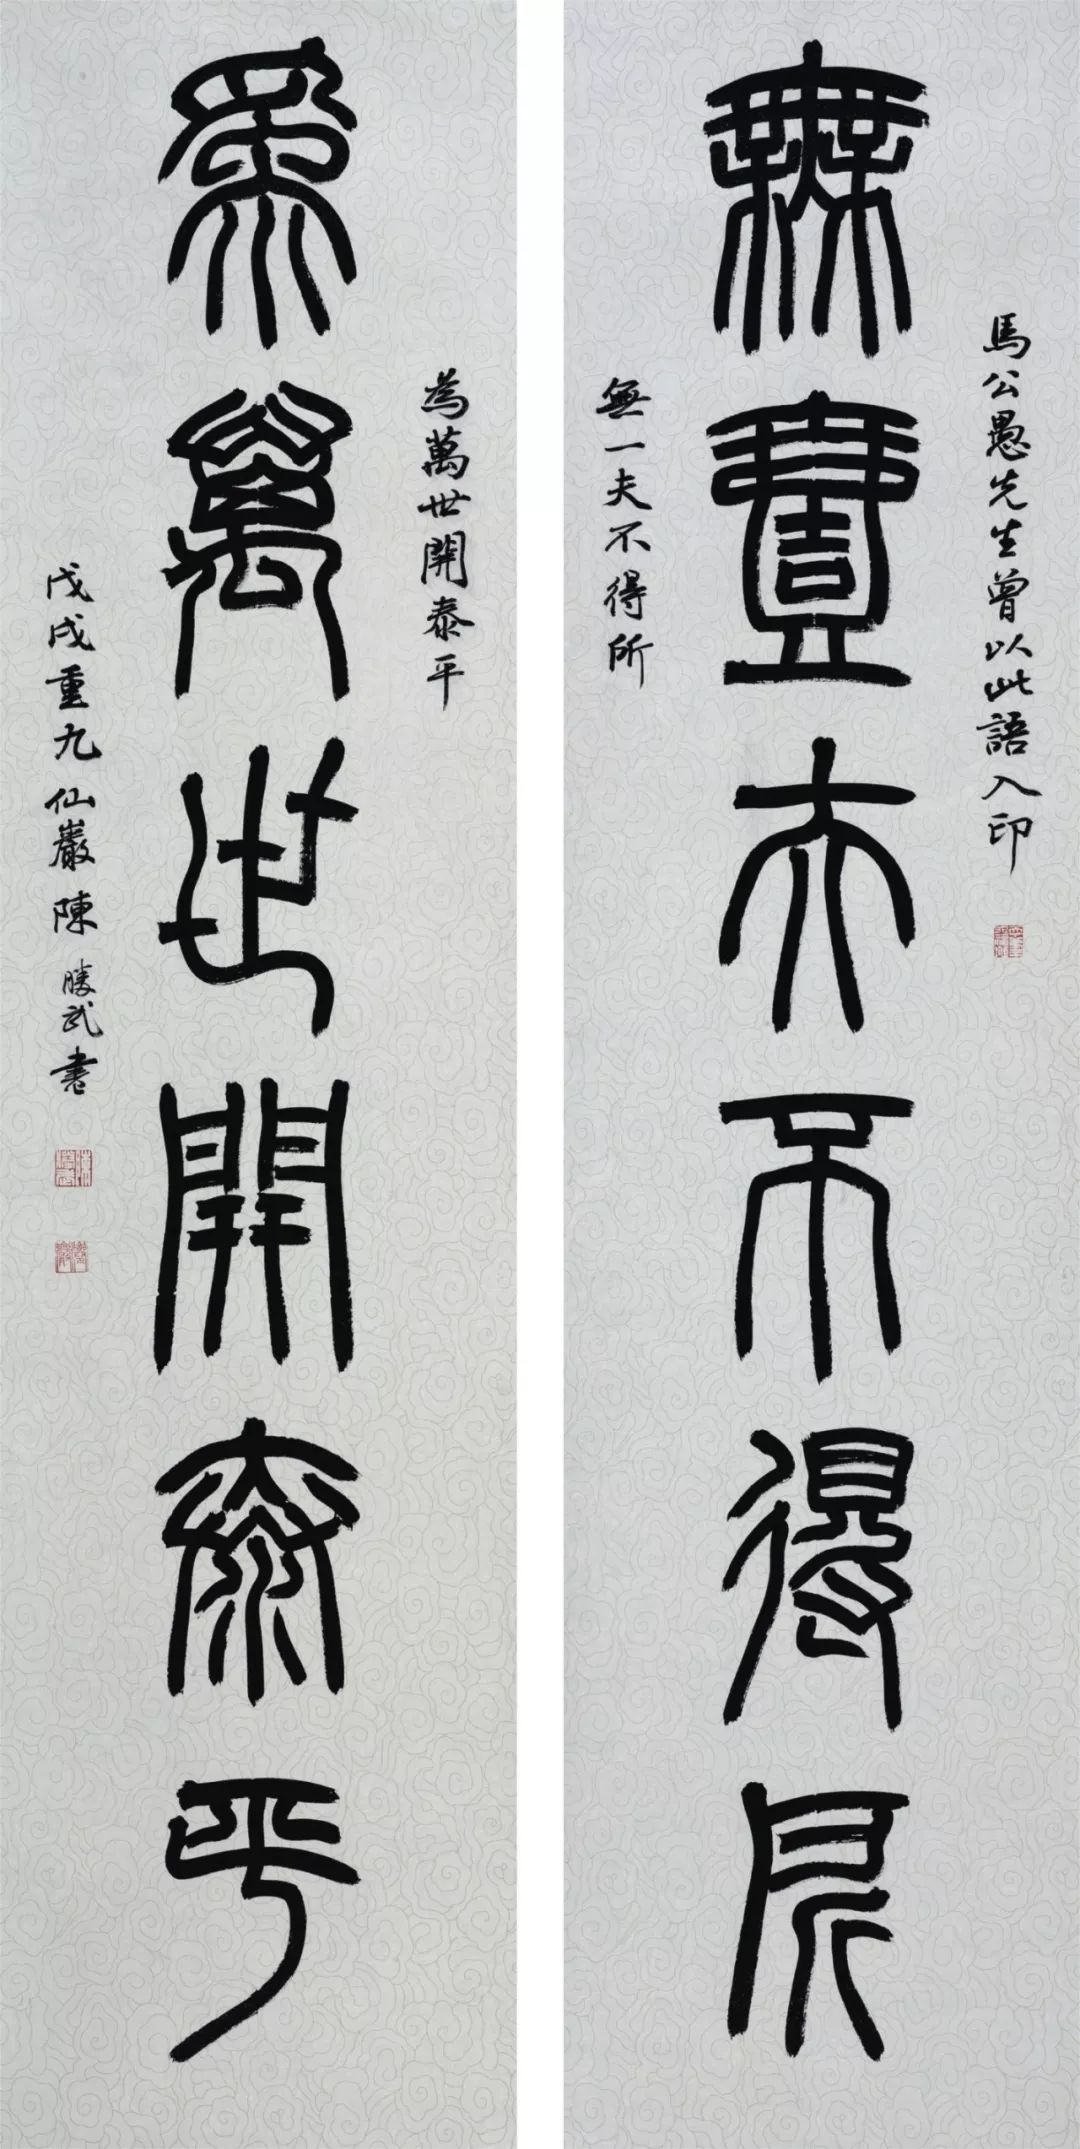 馬公愚先生曾以此語入印
無壹夫不得所
無一夫不得所
為萬世開泰平
為萬世開泰平
戊戌重九仙巖陳勝武書